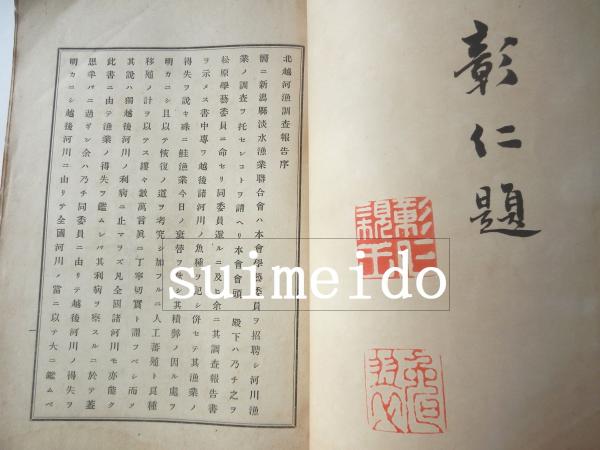 彰仁題
彰仁親王
北越河漁調査報告序
嚮ニ新潟縣淡水漁業聯合會ハ本會學藝委員ヲ招聘シ河川漁
業ノ調査ヲ托センコトヲ請ヘリ本會會頭 殿下ハ乃チ之ヲ
松原學藝委員ニ命セリ同委員還ルニ及ヒ余ニ其調査報告書
ヲ示メス書中專ヲ越後諸河川ノ魚種ヲ記シ併セテ其漁業ノ
得失ヲ説キ殊ニ鮭漁業今日ノ衰替ヲ其積弊ノ因ル處ヲ
明カニシ且以テ恢復ノ道ヲ考究シ加フルニ人工蕃殖ト良種
移殖ノ計ヲ以テス縷々數萬言眞ニ丁寧切實ト謂フベシ而ヲ
其説ハ獨越後河川ノ利病ニ止マラズ凡全國諸河川モ亦能ク
此書ニ由テ漁業ノ得失ヲ鑑ムレバ其利病ヲ察スルニ於テ蓋
思半バニ過ギン余ハ乃チ同委員ニ由リテ越後河川ノ得失ヲ
明カニシ越後河川ニ由リテ全國河川ノ當ニ以テ大ニ鑑ムベ
一
suimeido